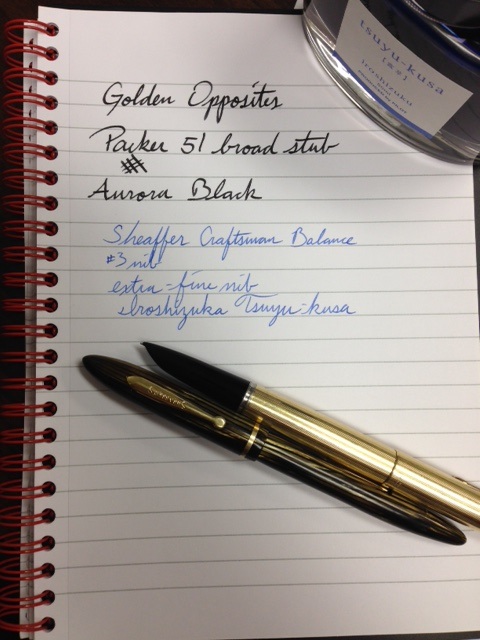 tsuyu-kusa
iroshizuku
Golden Opposites
Parker 51 broad stub
Aurora Black
Sheaffer Craftsman Balance
#3 nib
extra-fine nib
Iroshizuka Tsuyu-kusa
SHEAFFER'S